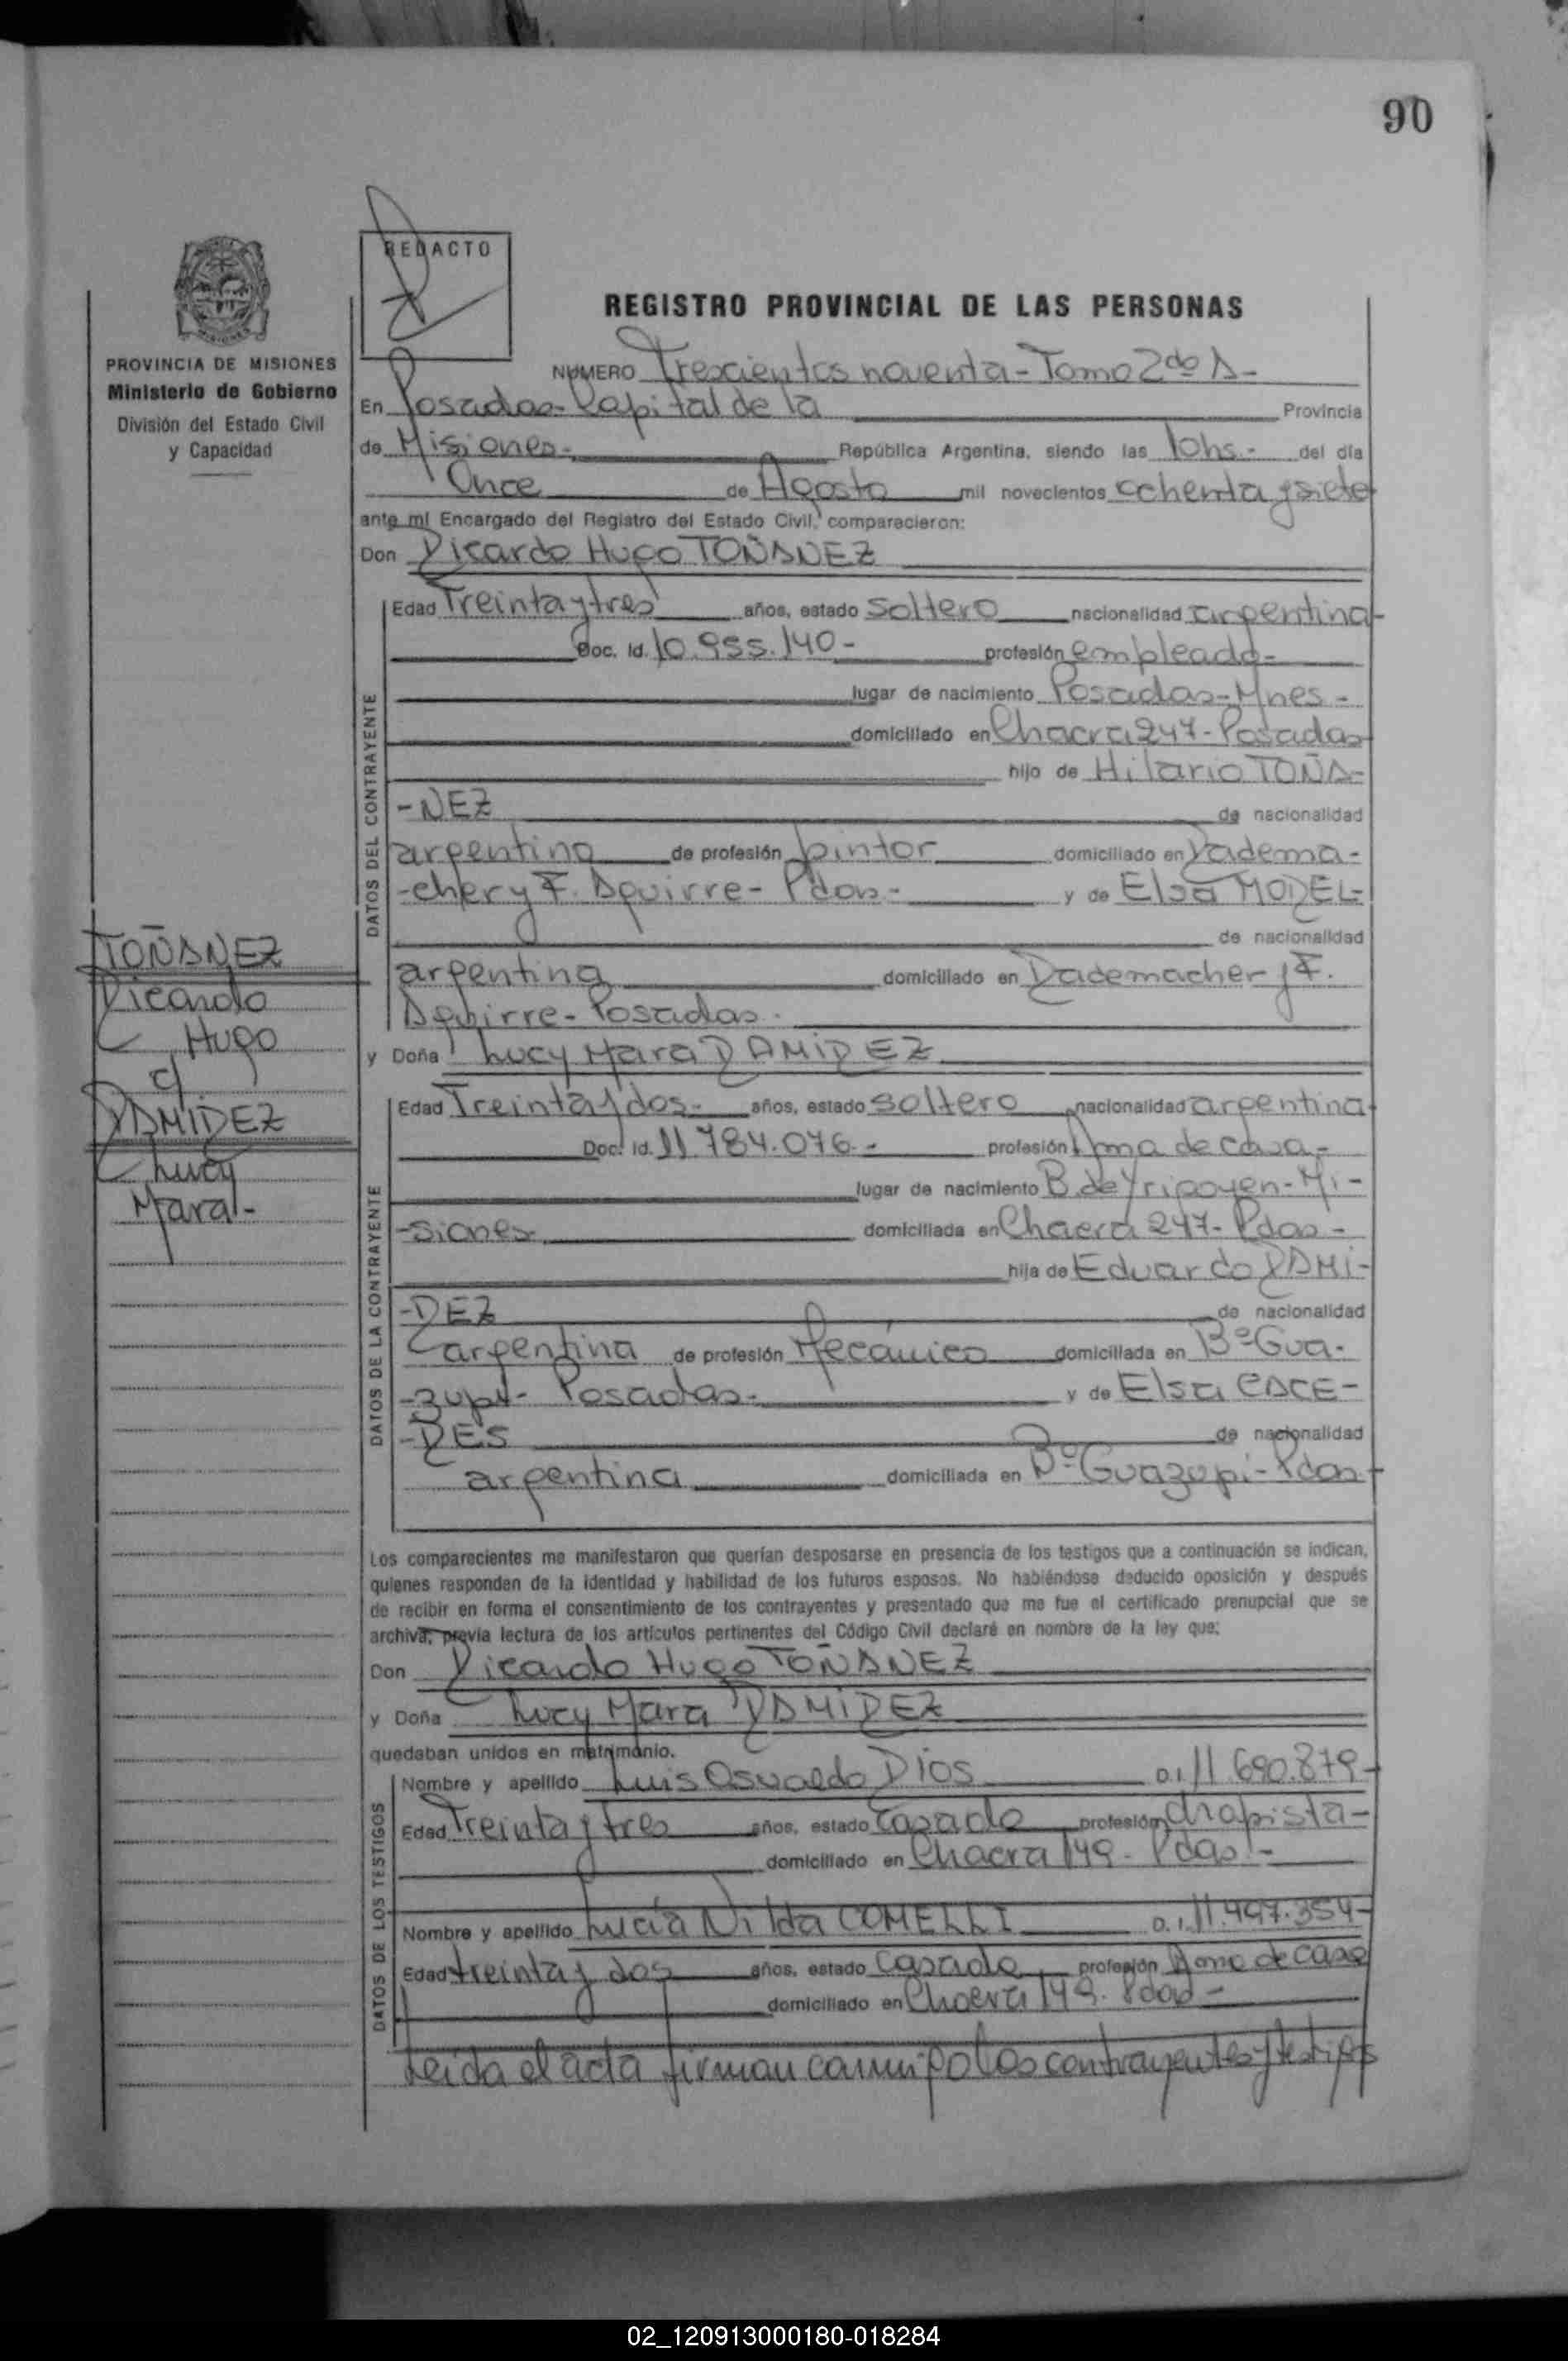 90
REDACTO
REGISTRO PROVINCIAL DE LAS PERSONAS
PROVINCIA DE MISIONES
Ministerio de Gobierno
División del Estado Civil
y Capacidad
NUMERO Trescientos noventa - Tomo 2do A -
En Posadas - Capital de la Provincia
de Misiones - República Argentina, siendo las 10hs. - del día
Once de Agosto mil novecientos ochenta y siete
ante mi Encargado del Registro del Estado Civil, comparecieron:
Don Ricardo Hugo TOÑANEZ
DATOS DEL CONTRAYENTE
Edad Treinta y tres años, estado soltero nacionalidad argentina -
Doc. Id. 10.955.140 - profesión empleado -
lugar de nacimiento Posadas - Mnes -
domiciliado en Chacra 247 - Posadas
hijo de Hilario TOÑA-
-NEZ de nacionalidad
argentino de profesión pintor domiciliado en Radema-
-cher y F. Aguirre - Pdas - y de Elsa MODEL-
de nacionalidad
argentina domiciliado en Rademacher y F.
Aguirre - Posadas -
y Doña Lucy Mara RAMIREZ
TOÑANEZ
Ricardo
Hugo
c/
RAMIREZ
Lucy
Mara -
DATOS DE LA CONTRAYENTE
Edad Treinta y dos - años, estado soltero nacionalidad argentina -
Doc. Id. 11.784.076 - - profesión Ama de casa -
lugar de nacimiento B. de Yrigoyen - Mi-
-siones domiciliada en Chacra 247 - Pdas -
hija de Eduardo RAMI-
-REZ de nacionalidad
argentina de profesión Mecánico domiciliada en Bº Gua-
-zupi - Posadas - y de Elsa CACE-
-RES de nacionalidad
argentina domiciliada en Bº Guazupi - Pdas -
Los comparecientes me manifestaron que querían desposarse en presencia de los testigos que a continuación se indican,
quienes responden de la identidad y habilidad de los futuros esposos. No habiéndose deducido oposición y después
de recibir en forma el consentimiento de los contrayentes y presentado que me fue el certificado prenupcial que se
archiva, previa lectura de los artículos pertinentes del Código Civil declaré en nombre de la ley que:
Don Ricardo Hugo TOÑANEZ
y Doña Lucy Mara RAMIREZ
quedaban unidos en matrimonio.
DATOS DE LOS TESTIGOS
Nombre y apellido Luis Osvaldo RIOS D.I. 11.690.879 -
Edad Treinta y tres años, estado casado profesión chapista -
domiciliado en Chacra 149 - Pdas -
Nombre y apellido Lucía Nilda COMELLI D.I. 11.497.354 -
Edad treinta y dos años, estado casada profesión Ama de casa
domiciliado en Chacra 149 - Pdas -
Leida el acta firman conmigo los contrayentes y testigos
02_120913000180-018284